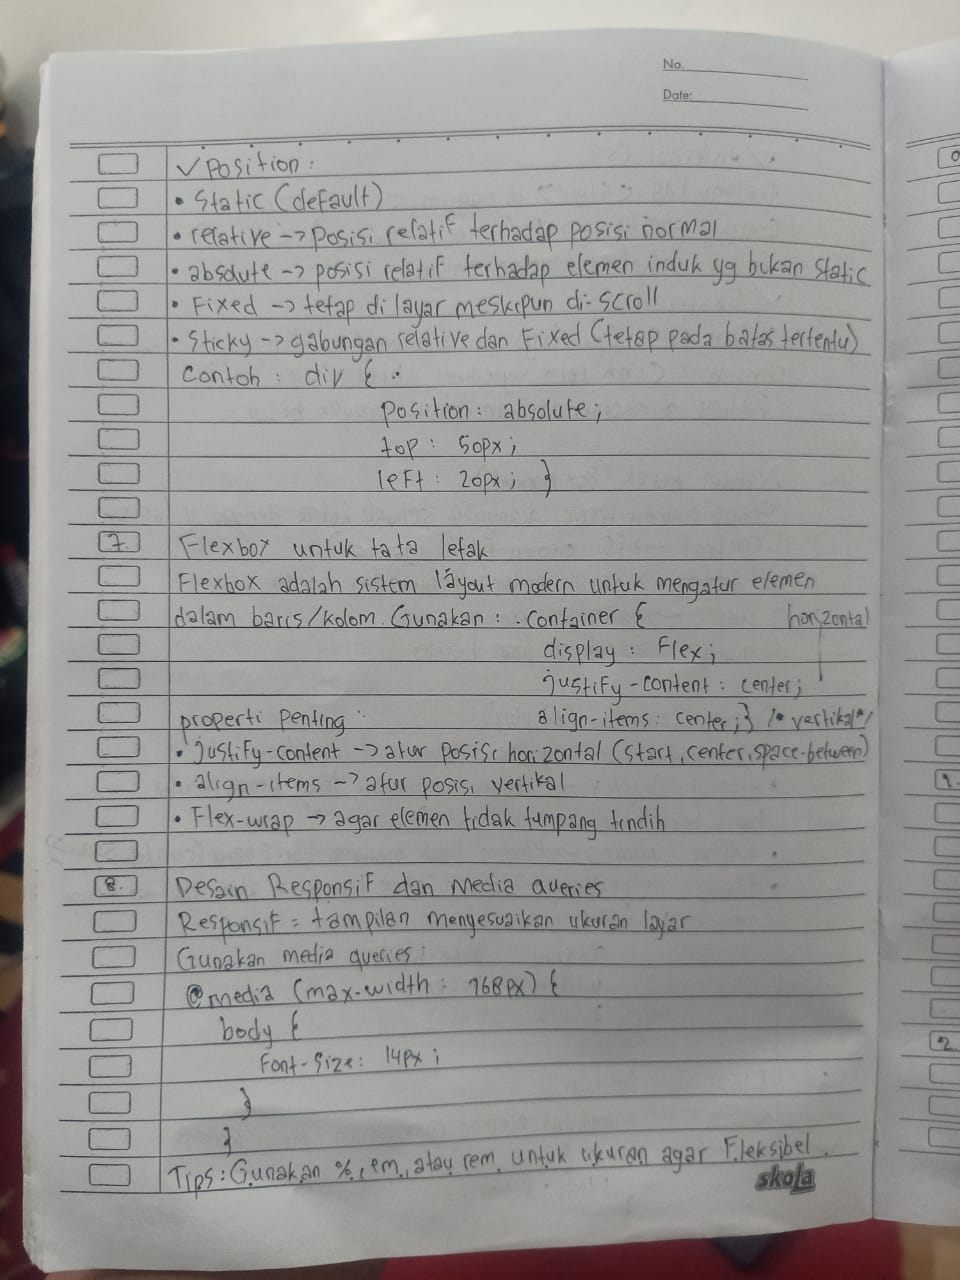 No.
Date:
✓ Position :
• Static (default)
• relative -> posisi relatif terhadap posisi normal
• absolute -> posisi relatif terhadap elemen induk yg bukan static
• Fixed -> tetap di layar meskipun di-scroll
• Sticky -> gabungan relative dan Fixed (tetap pada batas tertentu)
Contoh : div {
position : absolute ;
top : 50px ;
left : 20px ; }
7. Flexbox untuk tata letak
Flexbox adalah sistem layout modern untuk mengatur elemen
dalam baris/kolom. Gunakan : .container { horizontal
display : Flex ;
justify-content : center ;
properti penting : align-items : center ; } /* vertikal */
• justify-content -> atur posisi horizontal (start, center, space-between)
• align-items -> atur posisi vertikal
• Flex-wrap -> agar elemen tidak tumpang tindih
8. Desain Responsif dan Media queries
Responsif = tampilan menyesuaikan ukuran layar
Gunakan media queries :
@media (max-width : 768px) {
body {
Font-Size : 14px ;
}
}
Tips : Gunakan %, em, atau rem untuk ukuran agar Fleksibel.
skola
9
1.
2.